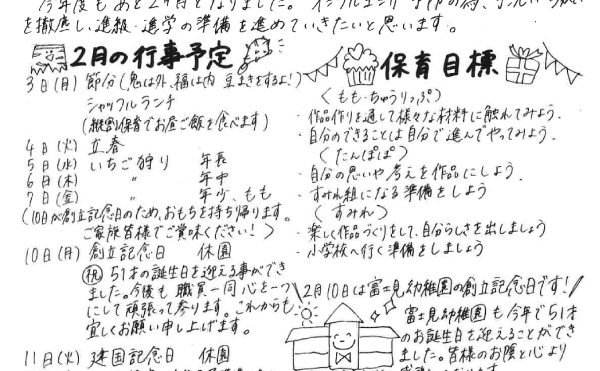 を徹底し、進級・進学の準備を進めていきたいと思います。
2月の行事予定
3日(月) 節分(鬼は外、福は内 豆まきをするよ!)
シャッフルランチ
(縦割保育でお昼ご飯を食べます)
4日(火) 立春
5日(水) いちご狩り 年長
6日(木) 〃 年中
7日(金) 〃 年少、もも
(10日が創立記念日のため、おもちを持ち帰ります。
ご家族皆様でご賞味ください!)
10日(月) 創立記念日 休園
祝 51才の誕生日を迎える事ができ
ました。今後も職員一同心を一つ
にして頑張って参ります。これからも
宜しくお願い申し上げます。
11日(火) 建国記念日 休園
保育目標
〈もも・ちゅうりっぷ〉
・作品作りを通して様々な材料に触れてみよう。
・自分のできることは自分で進んでやってみよう。
〈たんぽぽ〉
・自分の思いや考えを作品にしよう。
・すみれ組になる準備をしよう
〈すみれ〉
・楽しく作品づくりをして、自分らしさを出しましょう
・小学校へ行く準備をしましょう
2月10日は富士見幼稚園の創立記念日です!
富士見幼稚園も今年で51才
のお誕生日を迎えることができ
ました。皆様のお陰と心より